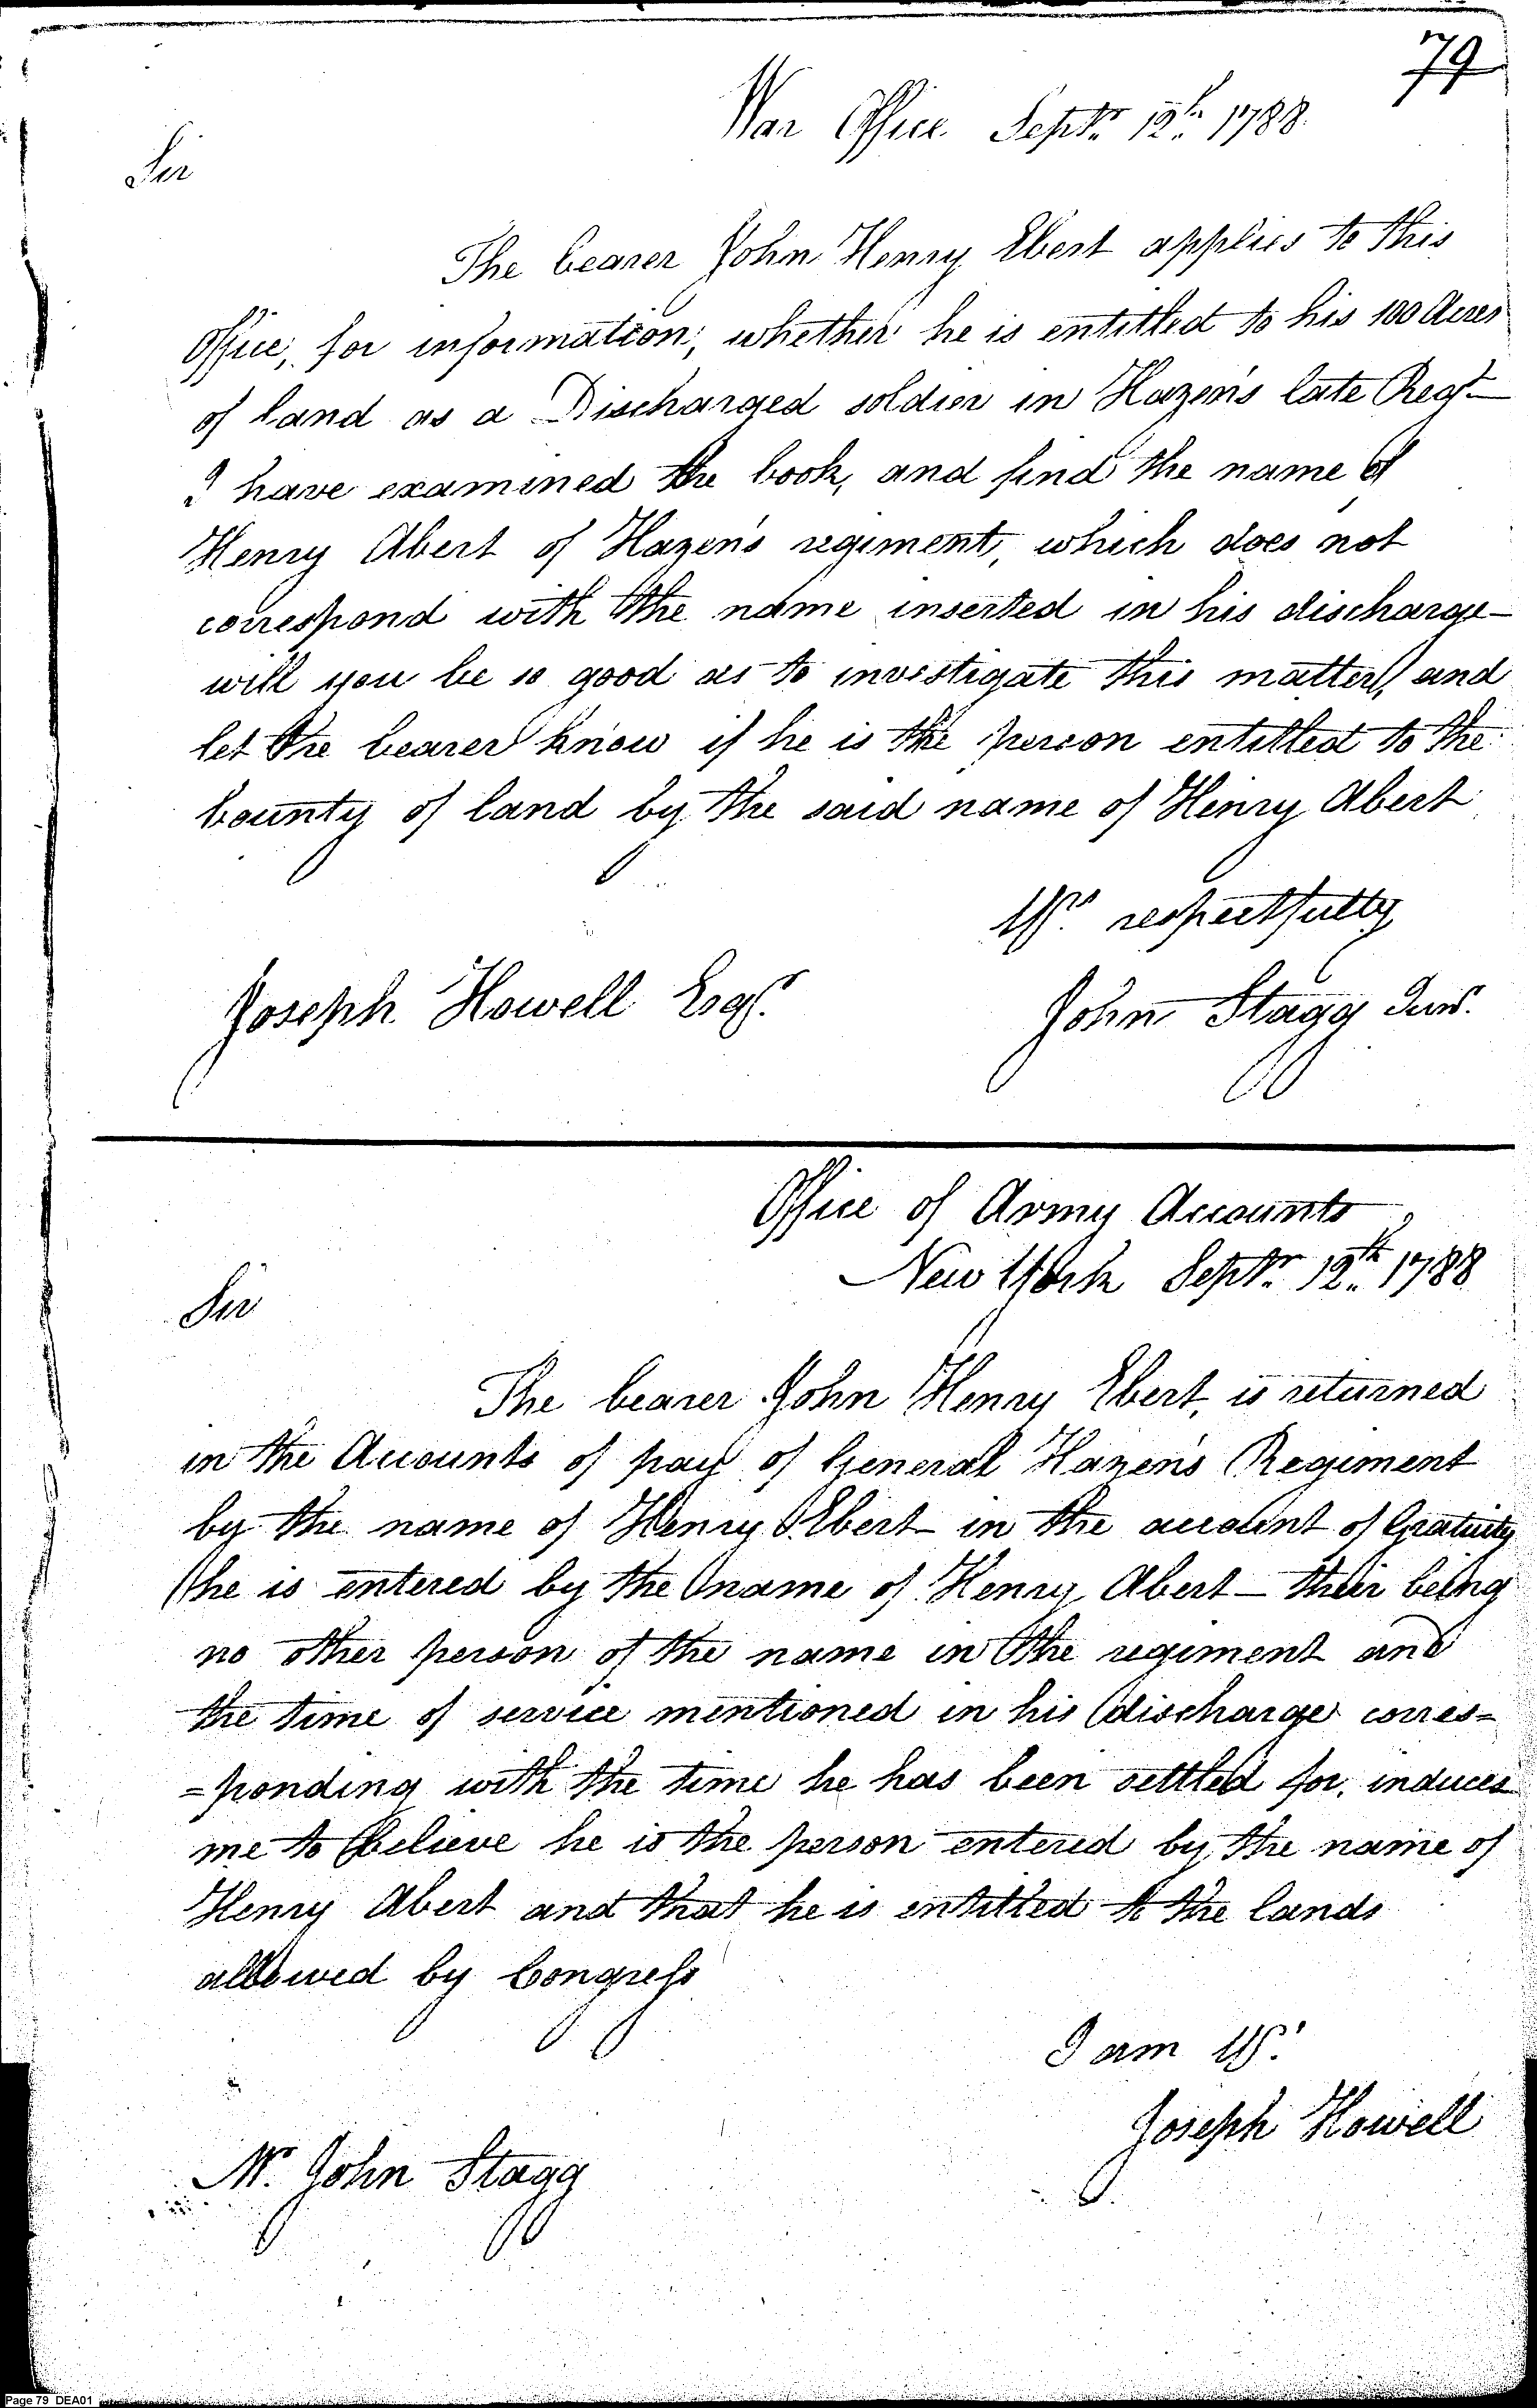 79
War Office Septr. 12th. 1788.
Sir
The bearer John Henry Ebert applies to this
Office, for information, whether he is entitled to his 100 Acres
of land as a Discharged soldier in Hazen's late Regt.
I have examined the book, and find the name of
Henry Abert of Hazen's regiment, which does not
correspond with the name inserted in his discharge–
will you be so good as to investigate this matter, and
let the bearer know if he is the person entitled to the
bounty of land by the said name of Henry Abert
Yrs. respectfully
Joseph Howell Esqr.
John Stagg Junr.
Office of Army Accounts
New York Septr. 12th. 1788
Sir
The bearer John Henry Ebert, is returned
in the Accounts of pay of General Hazen's Regiment
by the name of Henry Ebert– in the account of Gratuity
he is entered by the name of Henry Abert– their being
no other person of the name in the regiment and
the time of service mentioned in his discharge corres=
=ponding with the time he has been settled for, induces
me to believe he is the person entered by the name of
Henry Abert and that he is entitled to the lands
allowed by Congress
I am Yr.
Joseph Howell
Mr. John Stagg
Page 79 DEA01